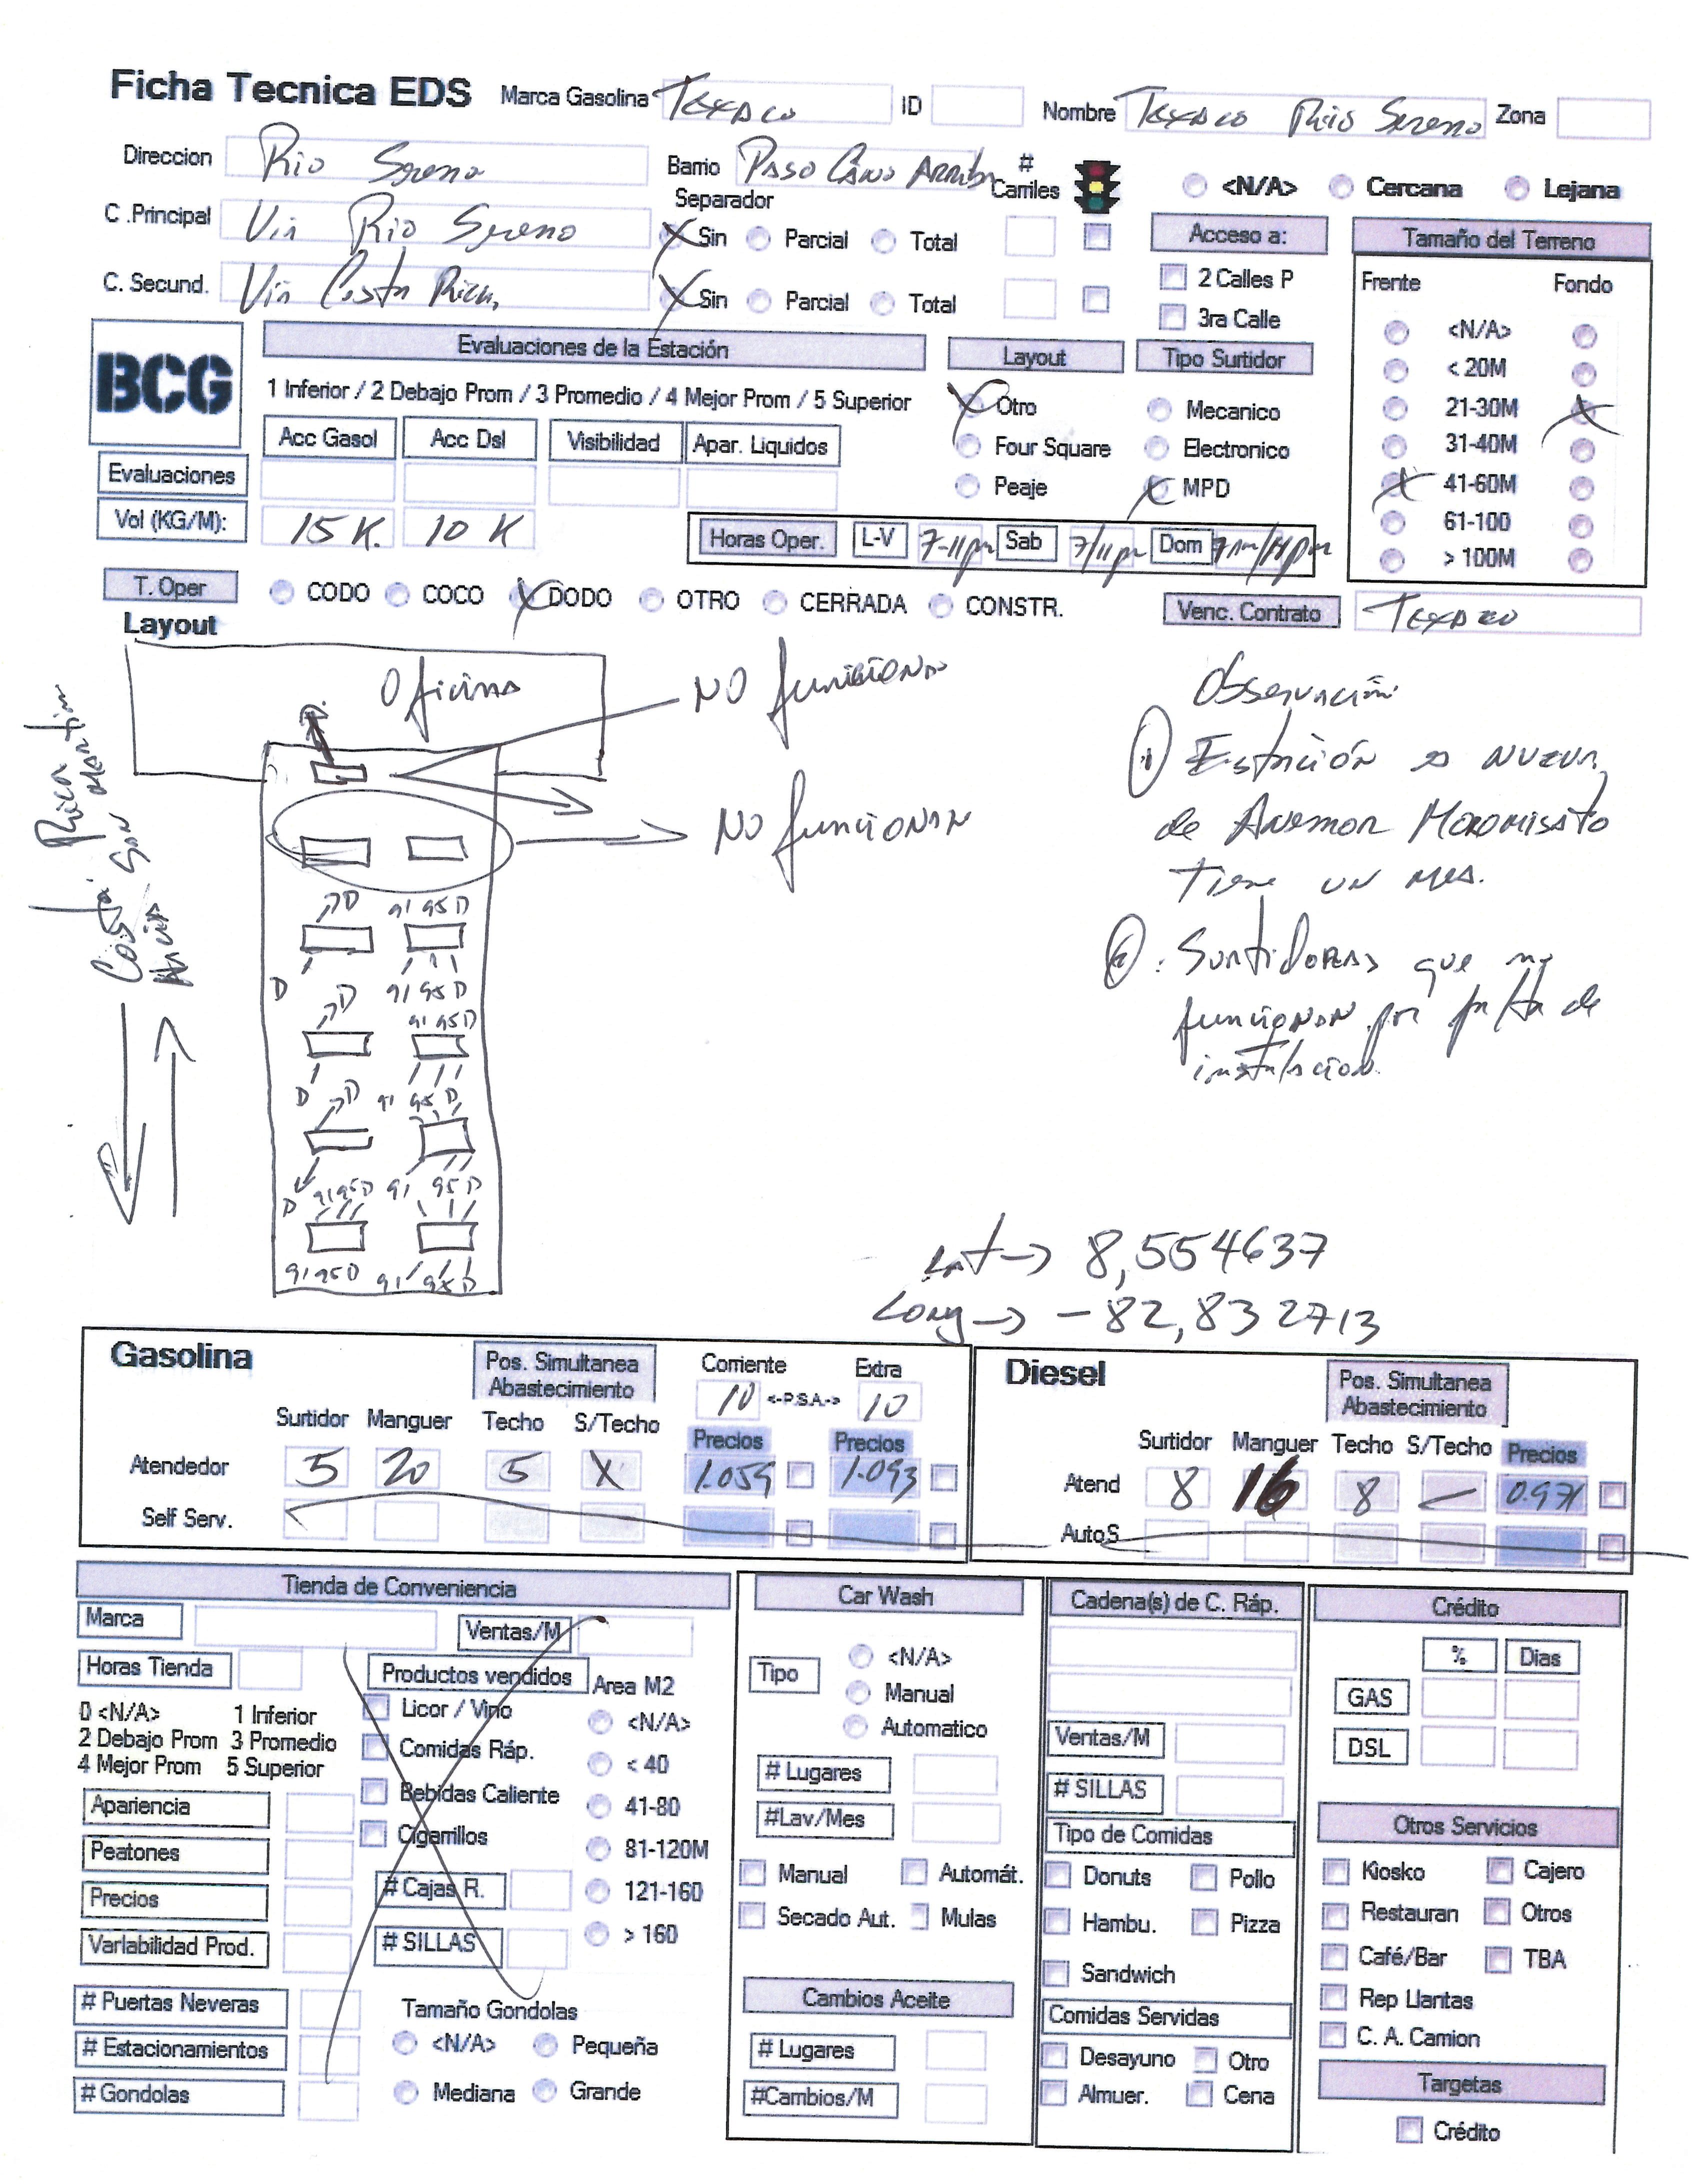 Ficha Tecnica EDS Marca Gasolina Texaco ID Nombre Texaco Rio Sereno Zona
Direccion Rio Sereno Barrio Paso Cano Arriba # Carriles <N/A> Cercana Lejana
Separador
C .Principal Via Rio Sereno Sin Parcial Total Acceso a: Tamaño del Terreno
C. Secund. Via Costa Rica Sin Parcial Total 2 Calles P Frente Fondo
3ra Calle
BCG Evaluaciones de la Estación Layout Tipo Surtidor <N/A>
< 20M
1 Inferior / 2 Debajo Prom / 3 Promedio / 4 Mejor Prom / 5 Superior Otro Mecanico 21-30M
Acc Gasol Acc Dsl Visibilidad Apar. Liquidos Four Square Electronico 31-40M
Evaluaciones Peaje MPD 41-60M
Vol (KG/M): 15 K. 10 K Horas Oper. L-V 7-11pm Sab 7/11pm Dom 7am/11pm 61-100
> 100M
T. Oper CODO COCO DODO OTRO CERRADA CONSTR. Venc. Contrato Texaco
Layout
Oficina
NO funcionan
NO funcionan
Costa Rica
Hacia San
Observación
1) Estación es nueva,
de
tiene un mes.
2). Surtidores que no
funcionan por falta de
instalacion.
D 91 95 D
D 91 95 D
D 91 95 D
D 91 95 D
D 91 95 D
D 91 95 D 91 95 D
91 95 D 91 95 D
Lat → 8,554637
Long → -82,832713
Gasolina Pos. Simultanea Abastecimiento Corriente Extra
10 <-P.S.A.-> 10
Surtidor Manguer Techo S/Techo Precios Precios
Atendedor 5 20 5 X 1.059 1.093
Self Serv.
Diesel Pos. Simultanea Abastecimiento
Surtidor Manguer Techo S/Techo Precios
Atend 8 16 8 — 0.971
AutoS
Tienda de Conveniencia
Marca Ventas/M
Horas Tienda Productos vendidos Area M2
0 <N/A> 1 Inferior Licor / Vino <N/A>
2 Debajo Prom 3 Promedio Comidas Ráp. < 40
4 Mejor Prom 5 Superior Bebidas Caliente 41-80
Apariencia Cigarrillos 81-120M
Peatones
Precios # Cajas R. 121-160
Variabilidad Prod. # SILLAS > 160
# Puertas Neveras Tamaño Gondolas
# Estacionamientos <N/A> Pequeña
# Gondolas Mediana Grande
Car Wash
Tipo <N/A>
Manual
Automatico
# Lugares
#Lav/Mes
Manual Automát.
Secado Aut. Mulas
Cambios Aceite
# Lugares
#Cambios/M
Cadena(s) de C. Ráp.
Ventas/M
# SILLAS
Tipo de Comidas
Donuts Pollo
Hambu. Pizza
Sandwich
Comidas Servidas
Desayuno Otro
Almuer. Cena
Crédito
% Dias
GAS
DSL
Otros Servicios
Kiosko Cajero
Restauran Otros
Café/Bar TBA
Rep Llantas
C. A. Camion
Targetas
Crédito